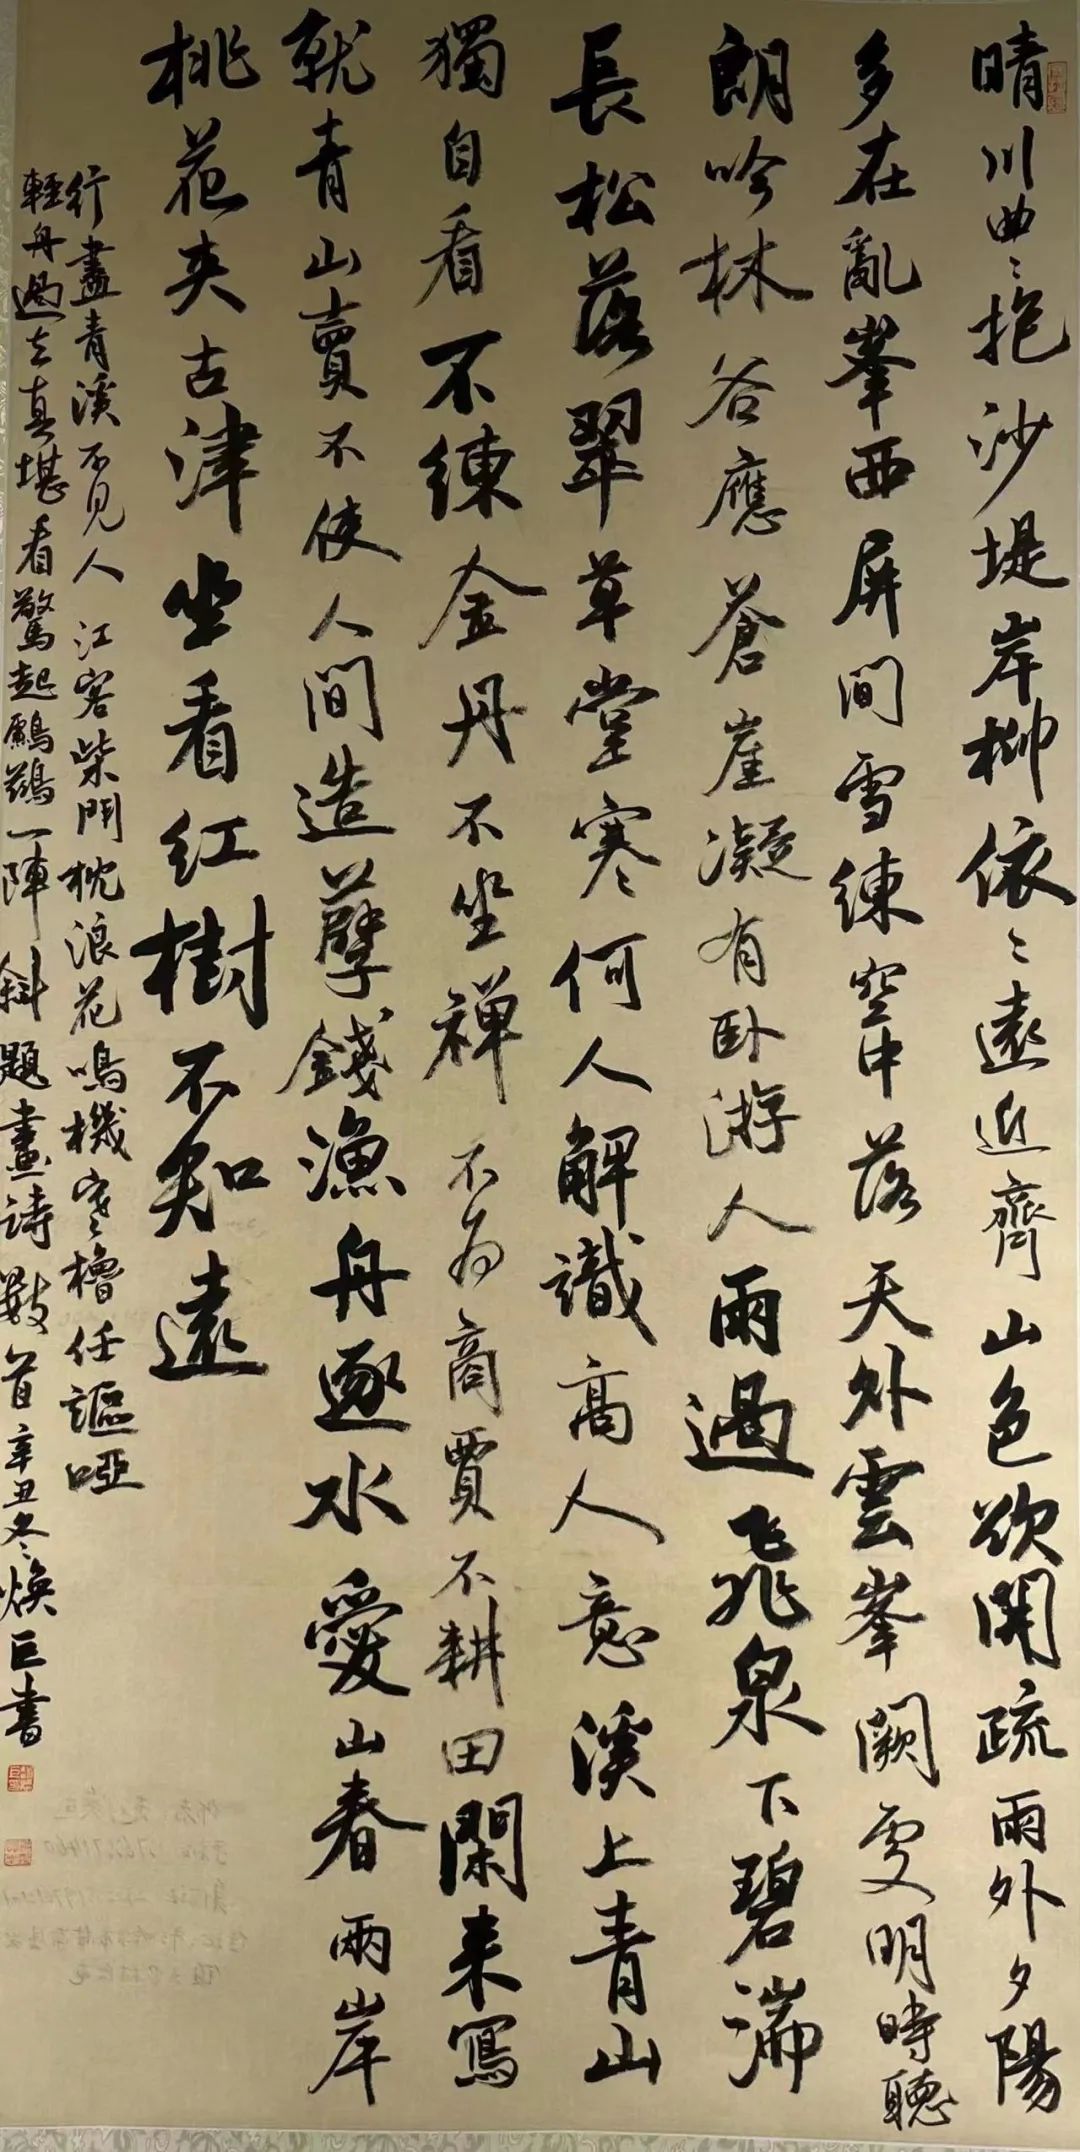 晴川曲〻抱沙堤岸柳依〻遠近齊山色欲開疏雨外夕陽
多在亂峯西屏間雪練空中落天外雲峯闕處明時聽
朗吟林谷應蒼崖凝有卧游人雨過飛泉下碧湍
長松落翠草堂寒〻何人解識高人意溪上青山
獨自看不練金丹不坐禅不為商賈不耕田閑来寫
就青山賣不使人間造孽錢漁舟逐水愛山春兩岸
桃花夹古津坐看红樹不知遠
行盡青溪不見人江客柴門枕浪花鳴機寒〻櫓任謳啞
輕舟過去真堪看驚起鸕鷀一陣斜題畫詩數首辛丑冬焕巨書